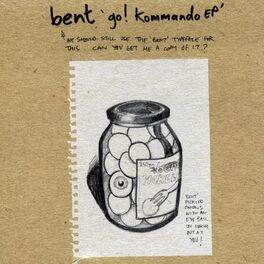 bent 'go! Kommando EP'
WE SHOULD STILL USE THE 'BENT' TYPEFACE FOR
THIS CAN YOU GET ME A COPY OF IT?
'BENT'
PICKLED
ONIONS
WITH AN
EYE BALL
LOOKING
OUT AT
YOU!